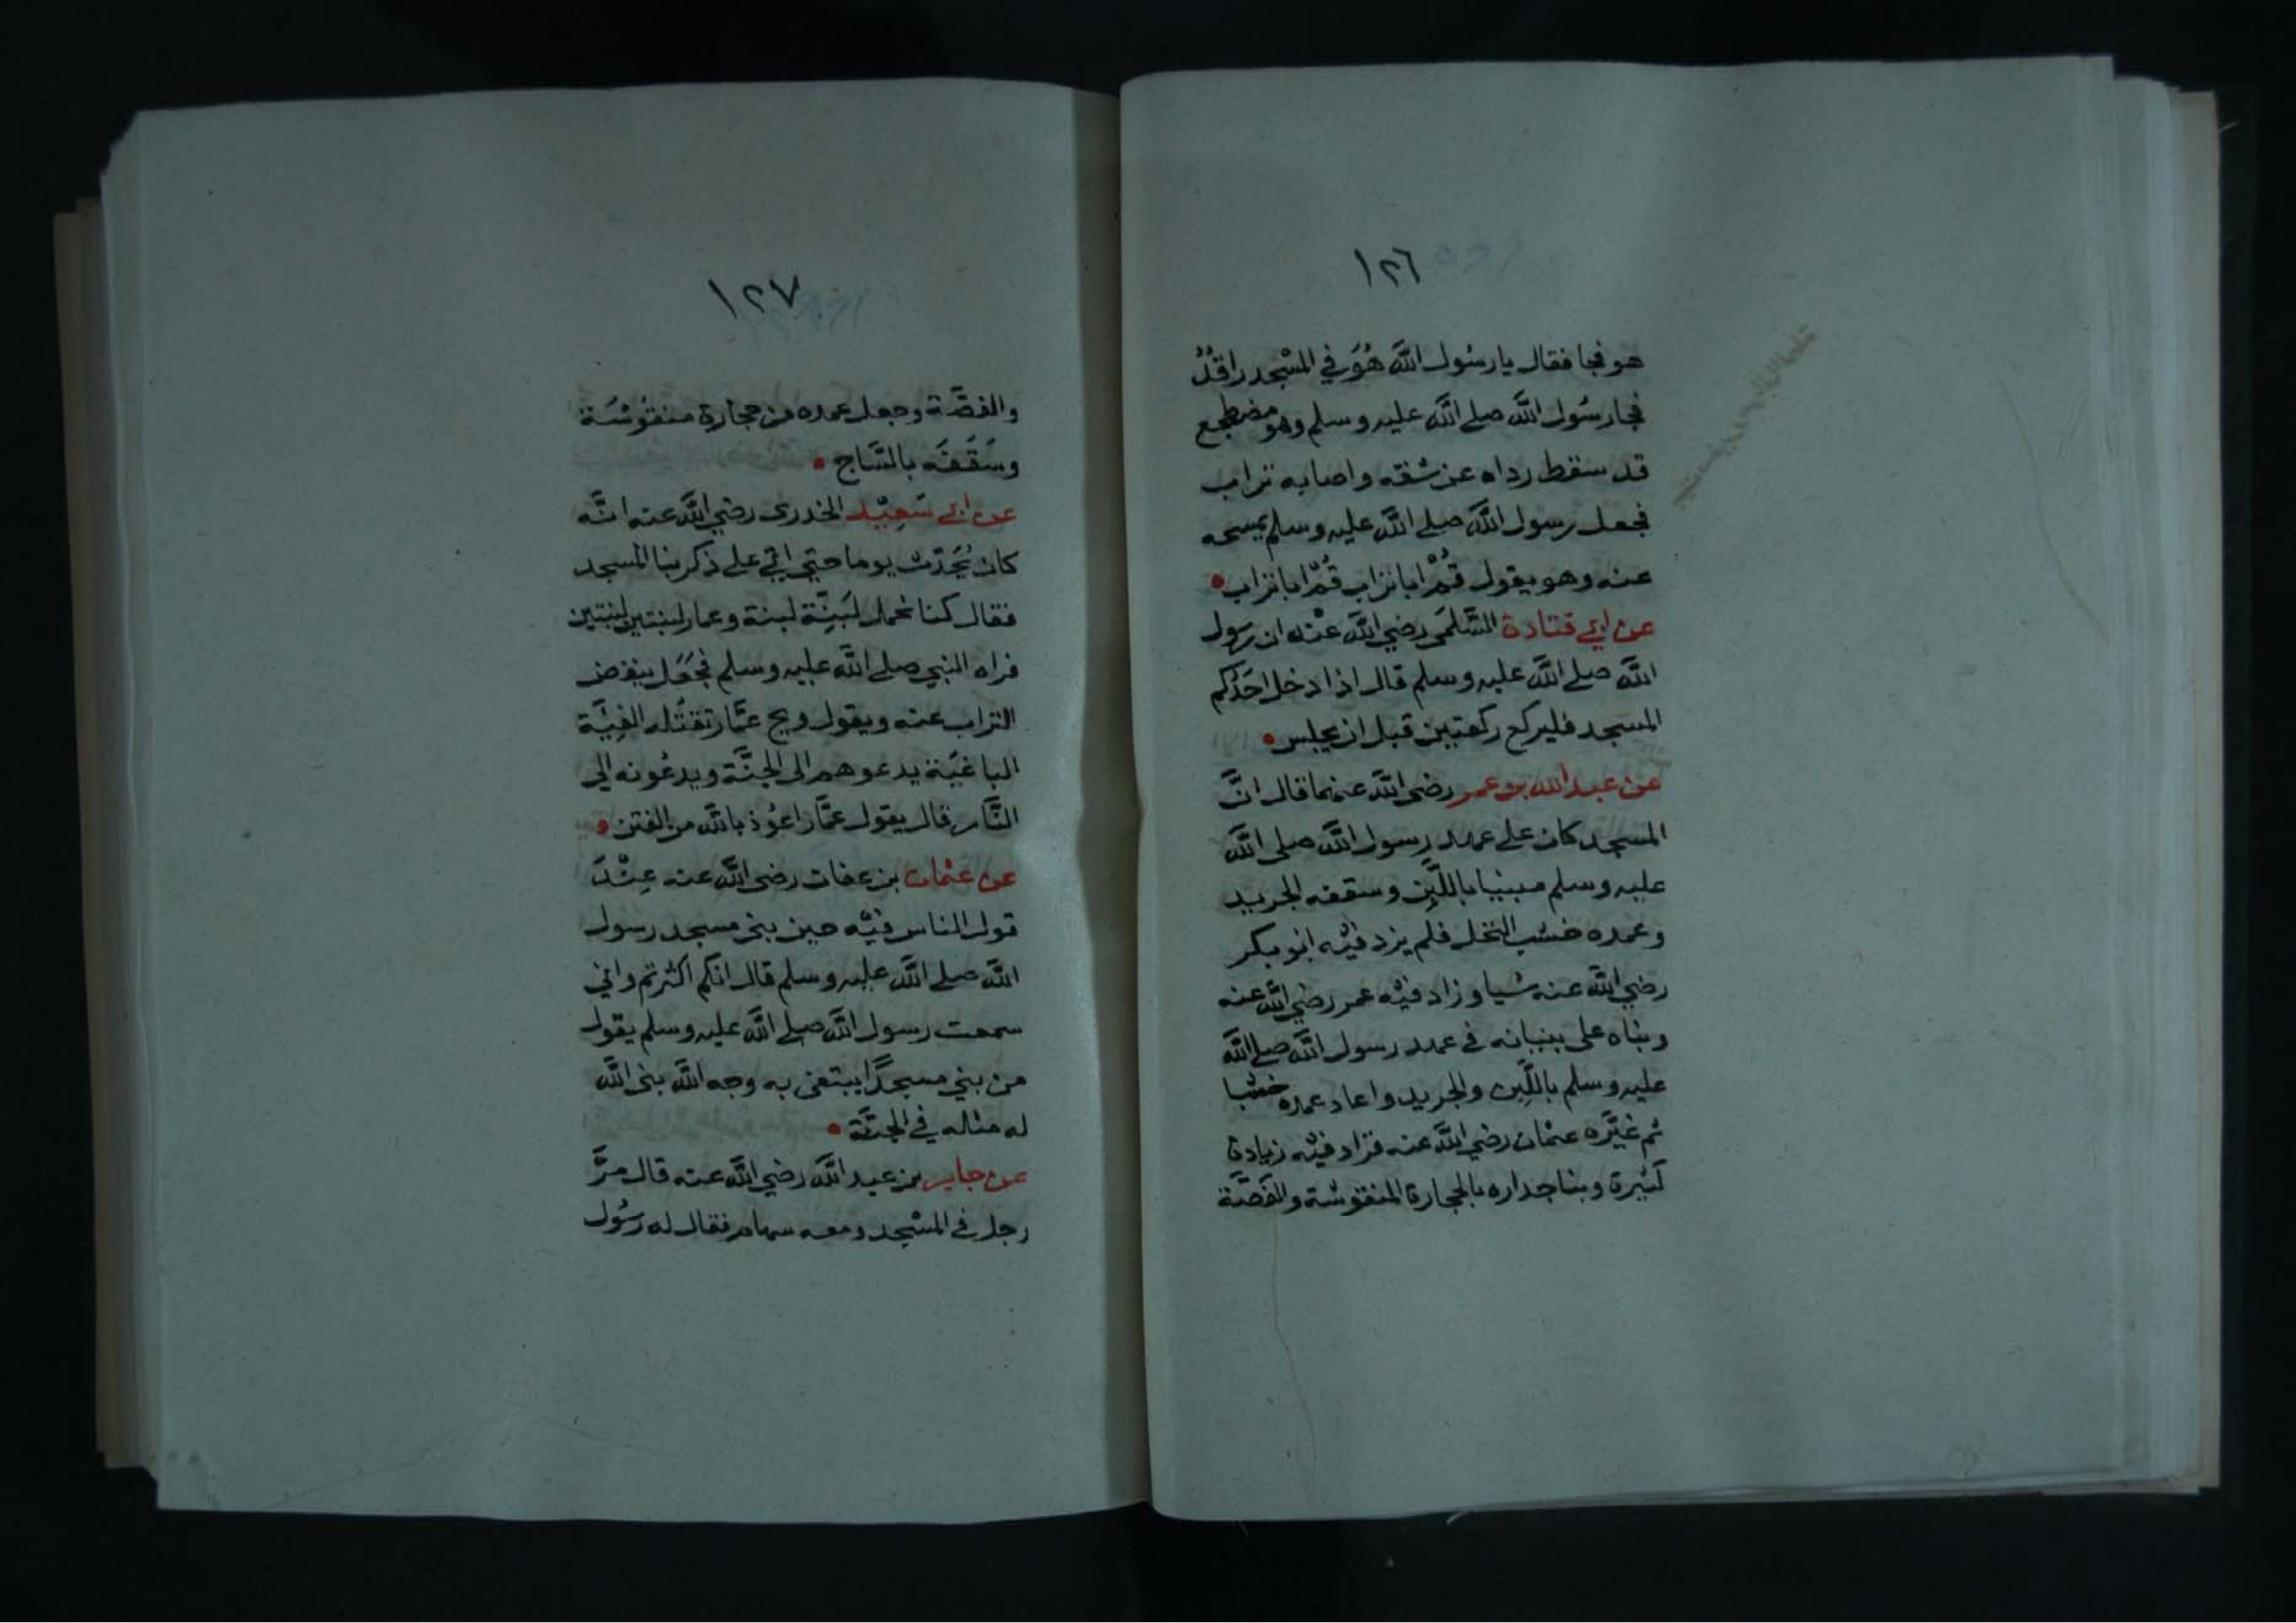 ١٢٦
هو فجا فقال يا رسُول اللَّه هُوَ في المسْجد راقدٌ
فجا رسُول اللَّه صلے اللَّه عليه وسلم وهو مضطجع
قد سقط رداه عن شقه واصابه تراب
فجعل رسول اللَّه صلے اللَّه عليه وسلم يمسحه
عنه وهو يقول قُمْ ابا تراب قُمْ ابا تراب
عن ابي قتادة السَّلَمى رضي اللَّه عنْه ان رسول
اللَّه صلے اللَّه عليه وسلم قال اذا دخل احَدُكم
المسجد فليركع ركعتين قبل ان يجلس
عن عبد الله بن عمر رضى اللَّه عنهما قال انَّ
المسجد كان على عهد رسول اللَّه صلى اللَّه
عليه وسلم مبنيا باللَّبِن وسقفه الجريد
وعمده خشب النخل فلم يزد فيْه ابو بكر
رضي اللَّه عنه شيا وزاد فيْه عمر رضي اللَّه عنه
وبناه على بنيانه في عهد رسول اللَّه صلے اللَّه
عليه وسلم باللَّبِن والجريد واعاد عمده خشبا
ثم غيَّره عثمان رضي اللَّه عنه فزاد فيْه زيادة
كَثيرة وبنا جداره بالحجارة المنقوشة والقَصَّة
١٢٧
والقصَّة وجعل عمده من حجارة منقوشَة
وسَقَفَه بالسَّاج
عن ابي سَعِيْد الخدرى رضي اللَّه عنه انَّه
كان يُحَدّث يوما حتي اتي على ذكر بنا المسجد
فقال كنا نحمل لَبِنَّة لبنة وعمار لبنتين لبنتين
فراه النبي صلے اللَّه عليه وسلم فجَعَل ينفض
التراب عنه ويقول ويح عَمَّار تقتُله الفِيَّة
الباغيَة يدعوهم الى الجنَّة ويدعُونه الي
النَّار قال يقول عمَّار اعوُذ باللَّه من الفتن
عن عثمان بن عفان رضى اللَّه عنه عِنْدَ
قول الناس فيْه حين بنى مسجد رسول
اللَّه صلے اللَّه عليه وسلم قال انكم اكثرتم واني
سمعت رسول اللَّه صلے اللَّه عليه وسلم يقول
من بني مسجدًا يبتغى به وجه اللَّه بنى اللَّه
له مثله في الجنَّة
عن جابر بن عبد اللَّه رضي اللَّه عنه قال مرَّ
رجل في المسْجد ومعه سهام فقال له رسُول